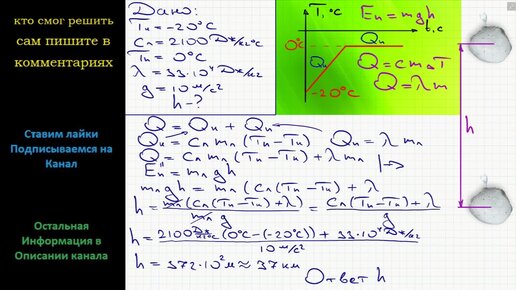 кто смог решить
сам пишите в
комментариях
Ставим лайки
Подписываемся на
Канал
Остальная
Информация в
Описании канала
Дано:
Tн = -20°C
Cл = 2100 Дж/кг°C
Tп = 0°C
λ = 33·10⁴ Дж/кг
g = 10 м/с²
h - ?
T, °C
Eп = mgh
t, c
0°C
Qп
Qн
-20°C
Q = cmΔT
Q = λm
h
Q = Qн + Qп
Qн = Cл mл (Tп - Tн) Qп = λ mл
Q = Cл mл (Tп - Tн) + λ mл
Eп = mл g h
mл g h = mл (Cл (Tп - Tн) + λ)
h = mл (Cл (Tп - Tн) + λ) / mл g = Cл (Tп - Tн) + λ / g
h = 2100 Дж/кг°C (0°C - (-20°C)) + 33·10⁴ Дж/кг / 10 м/с²
h = 372·10² м ≈ 37 км
Ответ h